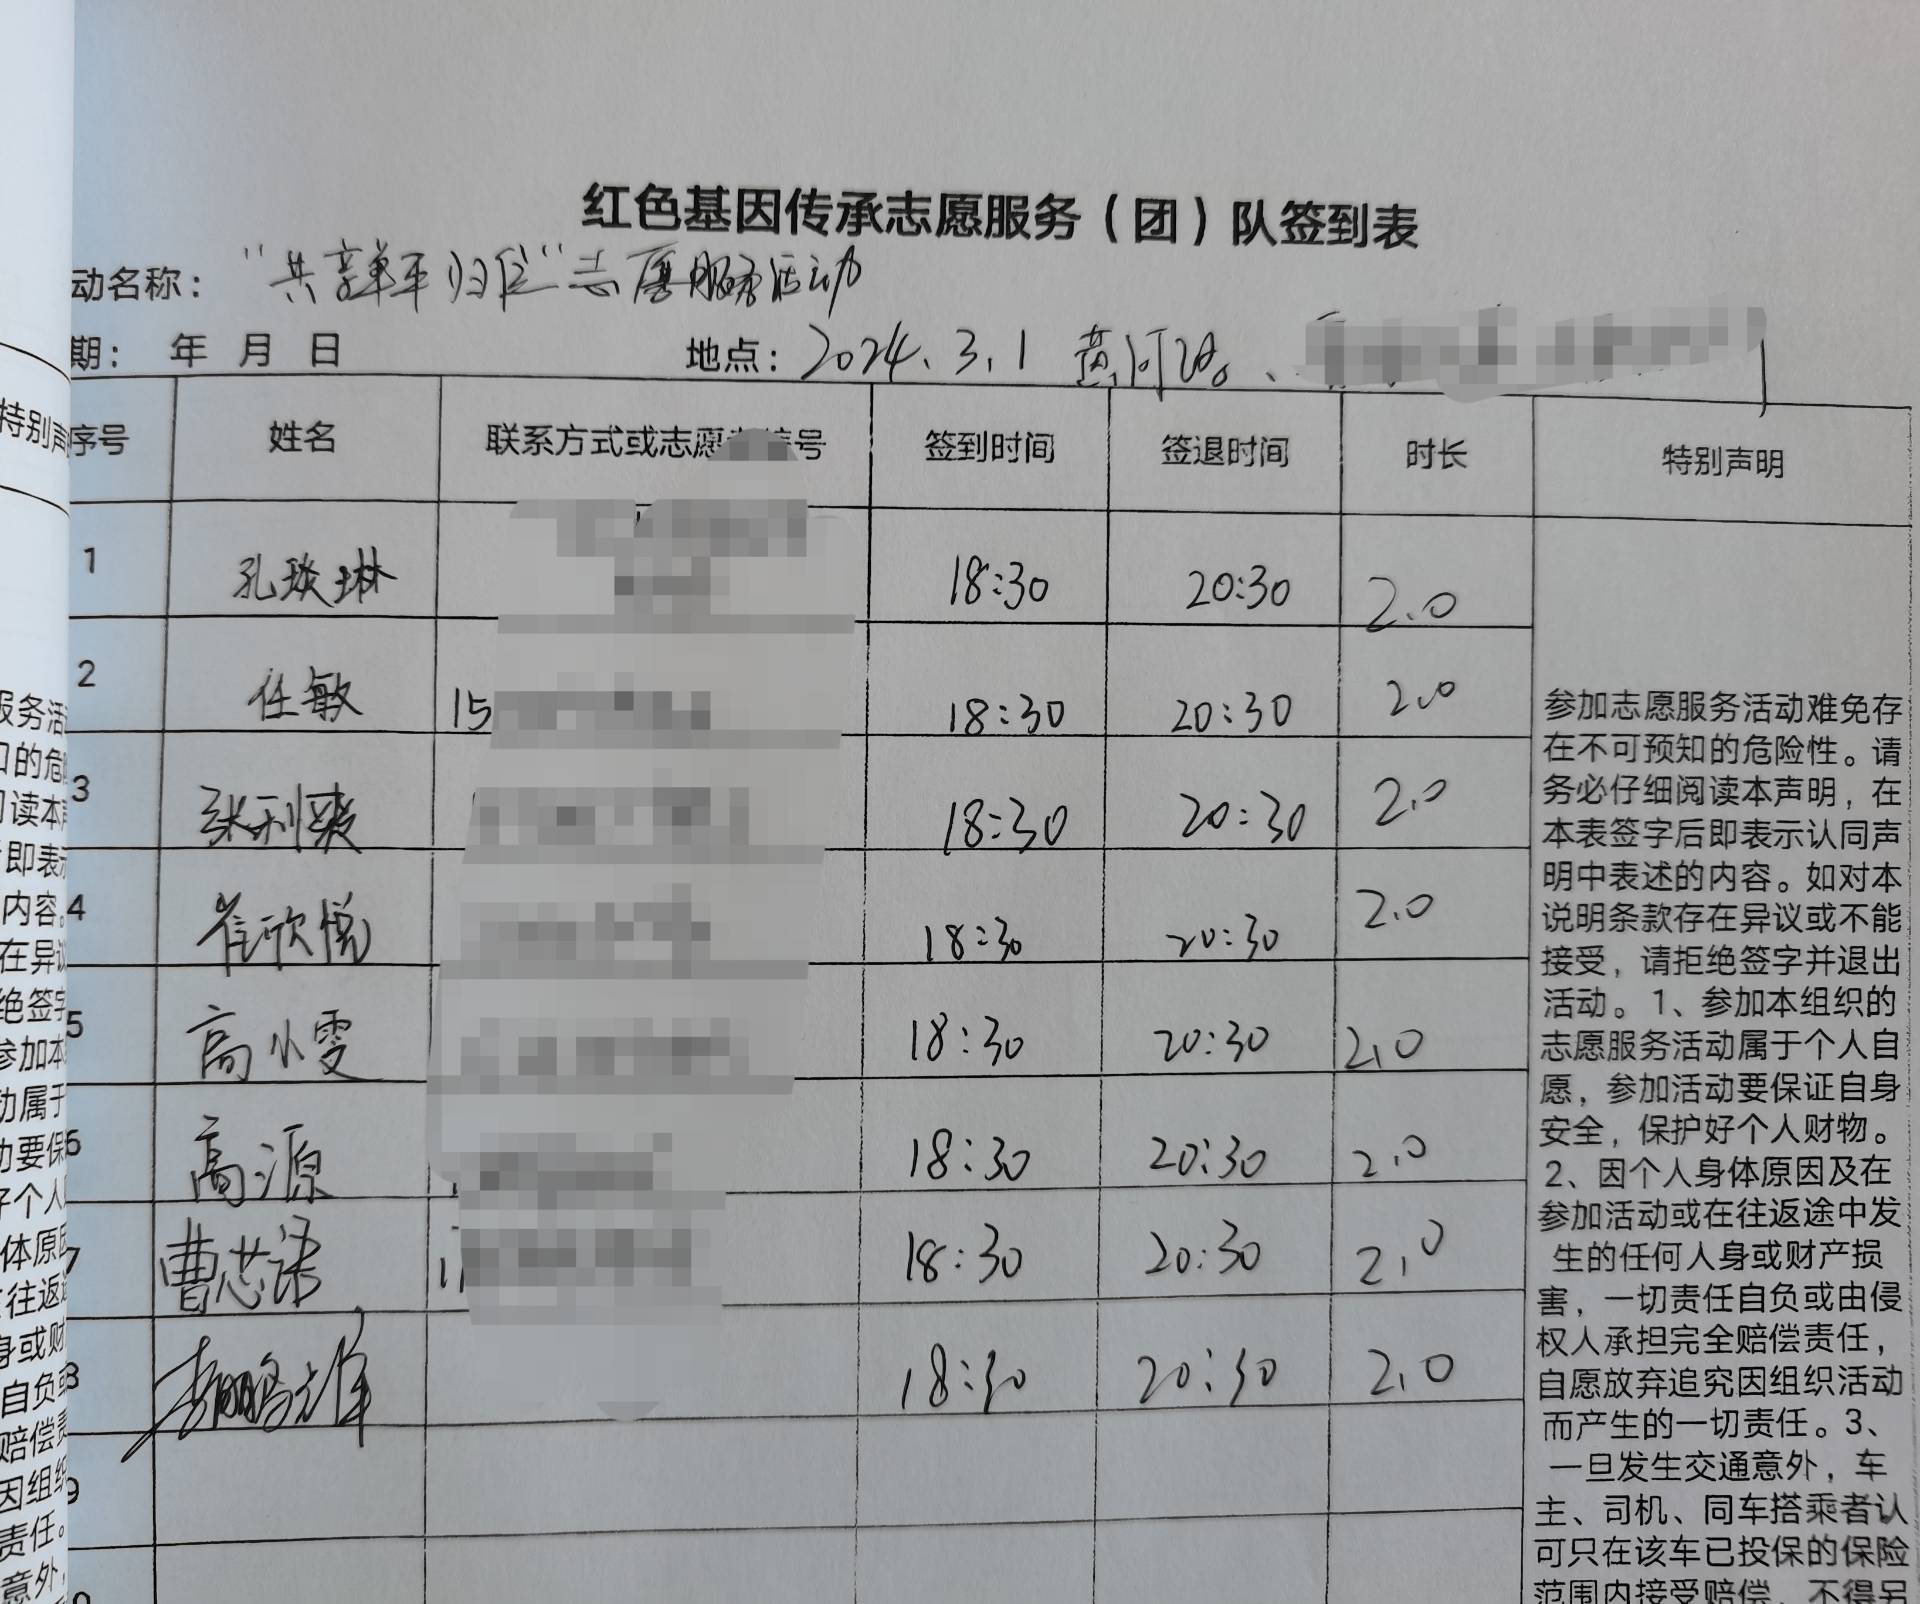 红色基因传承志愿服务（团）队签到表
动名称：“共享单车归位”志愿服务活动
期： 年 月 日 地点：2024.3.1 黄河路、
序号 姓名 联系方式或志愿 号 签到时间 签退时间 时长 特别声明
1 孔琰琳 18:30 20:30 2.0
2 任敏 15 18:30 20:30 2.0
3 张利爽 18:30 20:30 2.0
4 崔欣悦 18:30 20:30 2.0
5 高小雯 18:30 20:30 2.0
6 高源 18:30 20:30 2.0
7 曹芯语 1 18:30 20:30 2.0
8 李鹏 18:30 20:30 2.0
9
参加志愿服务活动难免存
在不可预知的危险性。请
务必仔细阅读本声明，在
本表签字后即表示认同声
明中表述的内容。如对本
说明条款存在异议或不能
接受，请拒绝签字并退出
活动。1、参加本组织的
志愿服务活动属于个人自
愿，参加活动要保证自身
安全，保护好个人财物。
2、因个人身体原因及在
参加活动或在往返途中发
生的任何人身或财产损
害，一切责任自负或由侵
权人承担完全赔偿责任，
自愿放弃追究因组织活动
而产生的一切责任。3、
一旦发生交通意外，车
主、司机、同车搭乘者认
可只在该车已投保的保险
范围内接受赔偿，不得另
特别声
服务活
口的危
读本
即表示
内容。
在异议
绝签字
参加本
动属于
动要保
好个人
体原因
往返
身或财
自负或
赔偿责
因组织
责任。
意外，